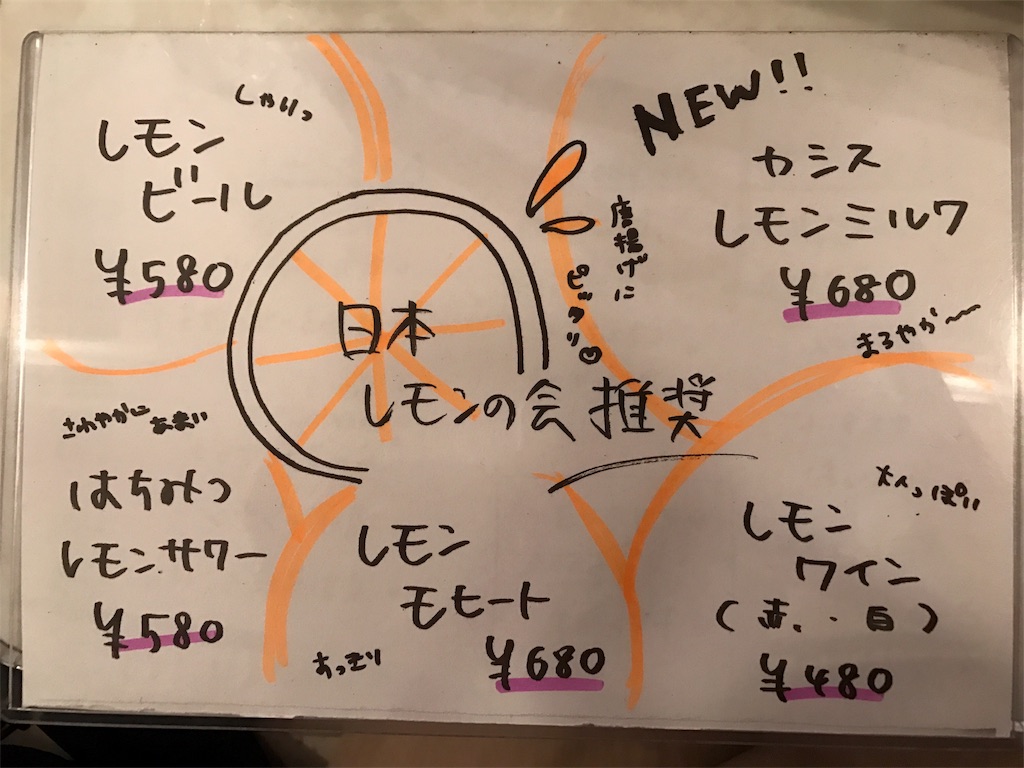 しゃりっ
レモン
ビール
¥580
NEW!!
カシス
レモンミルク
¥680
まろやか〜
唐揚げに
ピッタリ♡
日本
レモンの会 推奨
さわやかに
あまい
はちみつ
レモンサワー
¥580
レモン
モヒート
¥680
すっきり
大人っぽい
レモン
ワイン
(赤・白)
¥480